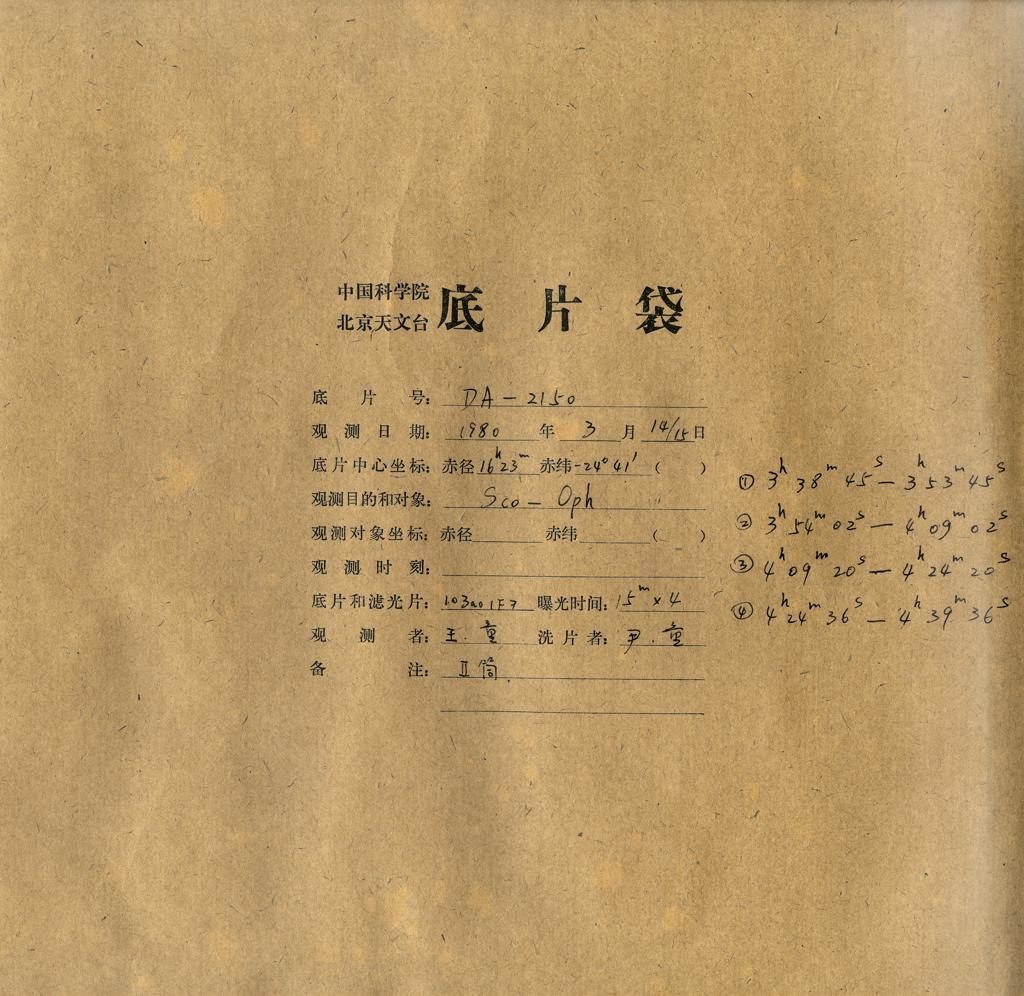 中国科学院
北京天文台
底片袋
底片号: DA-2150
观测日期: 1980年3月14/15日
底片中心坐标: 赤径16h23m 赤纬-24°41′( )
观测目的和对象: Sco-Oph
观测对象坐标: 赤径 赤纬 ( )
观测时刻:
底片和滤光片: 103a01F7 曝光时间: 15m×4
观测者: 王.童 洗片者: 尹.童
备注: Ⅱ筒.
① 3h38m45s—3h53m45s
② 3h54m02s—4h09m02s
③ 4h09m20s—4h24m20s
④ 4h24m36s—4h39m36s